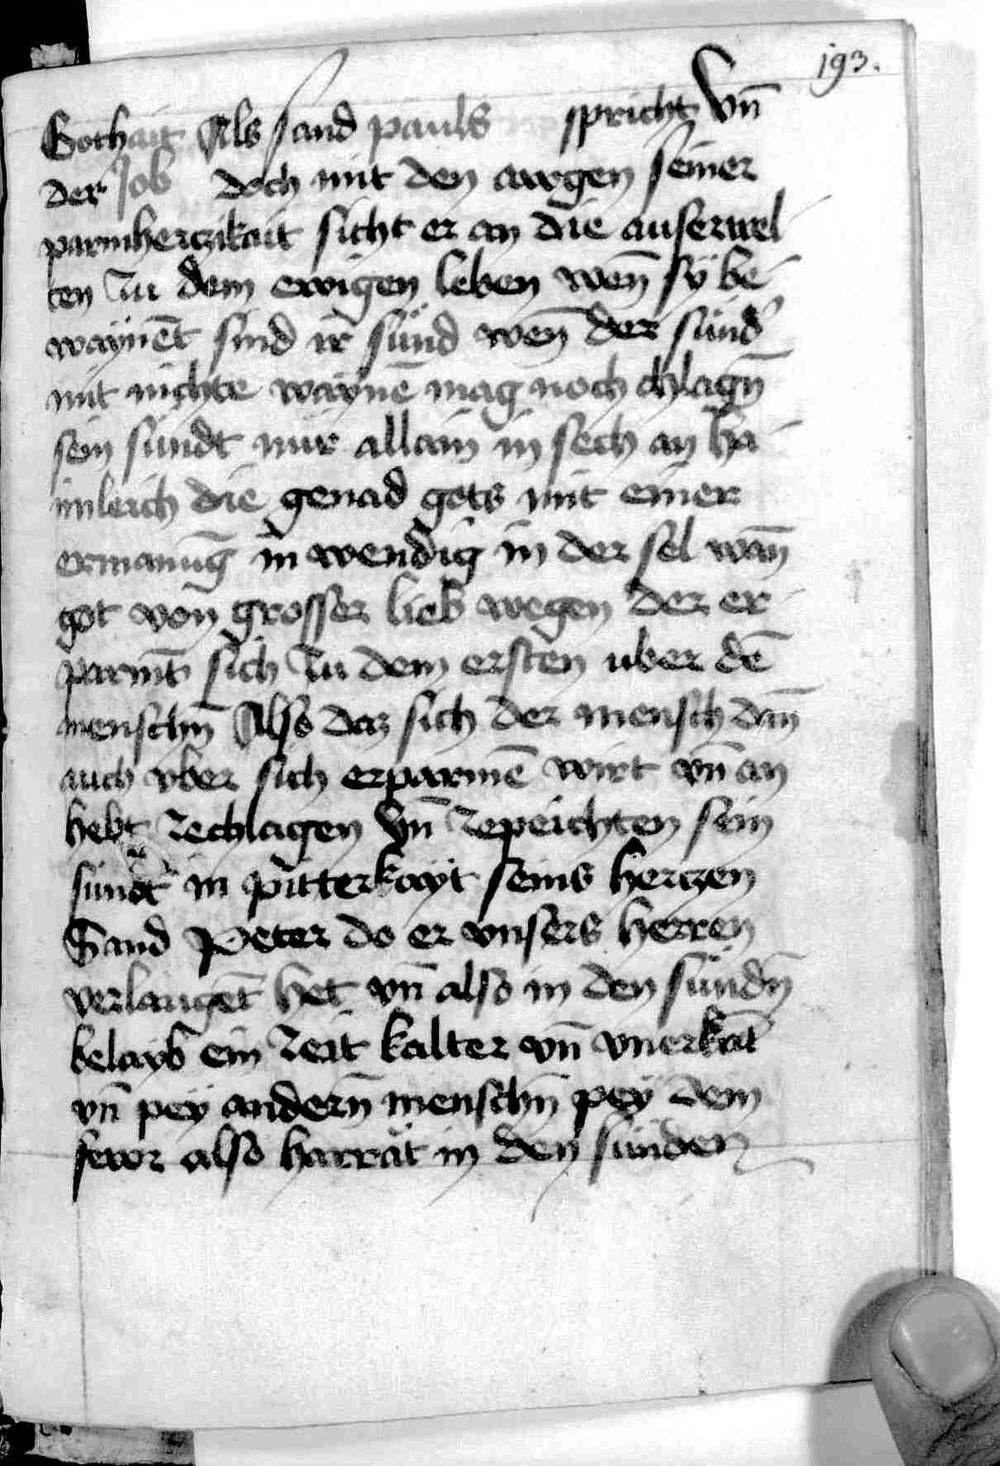 193.
Gothait Als sand pauls spricht Vn̄
der Job doch mit den awgen seiner
parmherczikait sicht er an die auserwel-
ten zu dem ewigen leben wen̄ sÿ be-
waÿnēt sind ir sünd wen̄ der sünd'
mit nichte waÿnē mag noch chlagn̄
sein sündt nür allain in sech an ha-
imleich die genad gots mit einer
ermanūg in wendig in der sel wan̄
got von grosser lieb wegen der er-
parmt̄ sich zu dem ersten uber dē
menschn̄ Also daz sich der mensch dan̄
auch vber sich erparmē wirt vn̄ an
hebt zechlagen Vn̄ zepeichten sein
sündt in pitterkayt seins herczen
Sand Peter do er vnsers herren
verlaugēt het vn̄ also in den sündn̄
belayb ein zeit kalter vn̄ vnerkāt
vn̄ pey andern̄ menschn̄ pey dem
fewr also harrat in den sünden